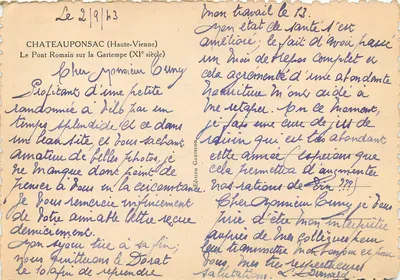 Le 2/9/43
CHATEAUPONSAC (Haute-Vienne)
Le Pont Romain sur la Gartempe (XIe siècle)
Cher Monsieur
Profitant d'une petite
randonnée à vélo par un
temps splendide et ce dans
un beau site, et vous sachant
amateur de belles photos, je
ne manque donc point de
penser à vous en la circonstance.
Je vous remercie infiniment
de votre aimable lettre reçue
dernièrement.
Mon séjour tire à sa fin;
nous quitterons le Dorat
le 10 afin de reprendre
mon travail le 13.
Mon état de santé s'est
amélioré; le fait d'avoir passé
un mois de repos complet et
cela agrémenté d'une abondante
nourriture m'ont aidé à
me retaper. En ce moment,
je fais une cure de jus de
raisin qui est très abondant
cette année (espérons que
cela permettra d'augmenter
nos rations de vin ???)
Cher Monsieur je vous
prie d'être mon interprète
auprès de mes collègues pour
leur transmettre mon bonjour et pour
vous, mes très respectueuses
salutations.